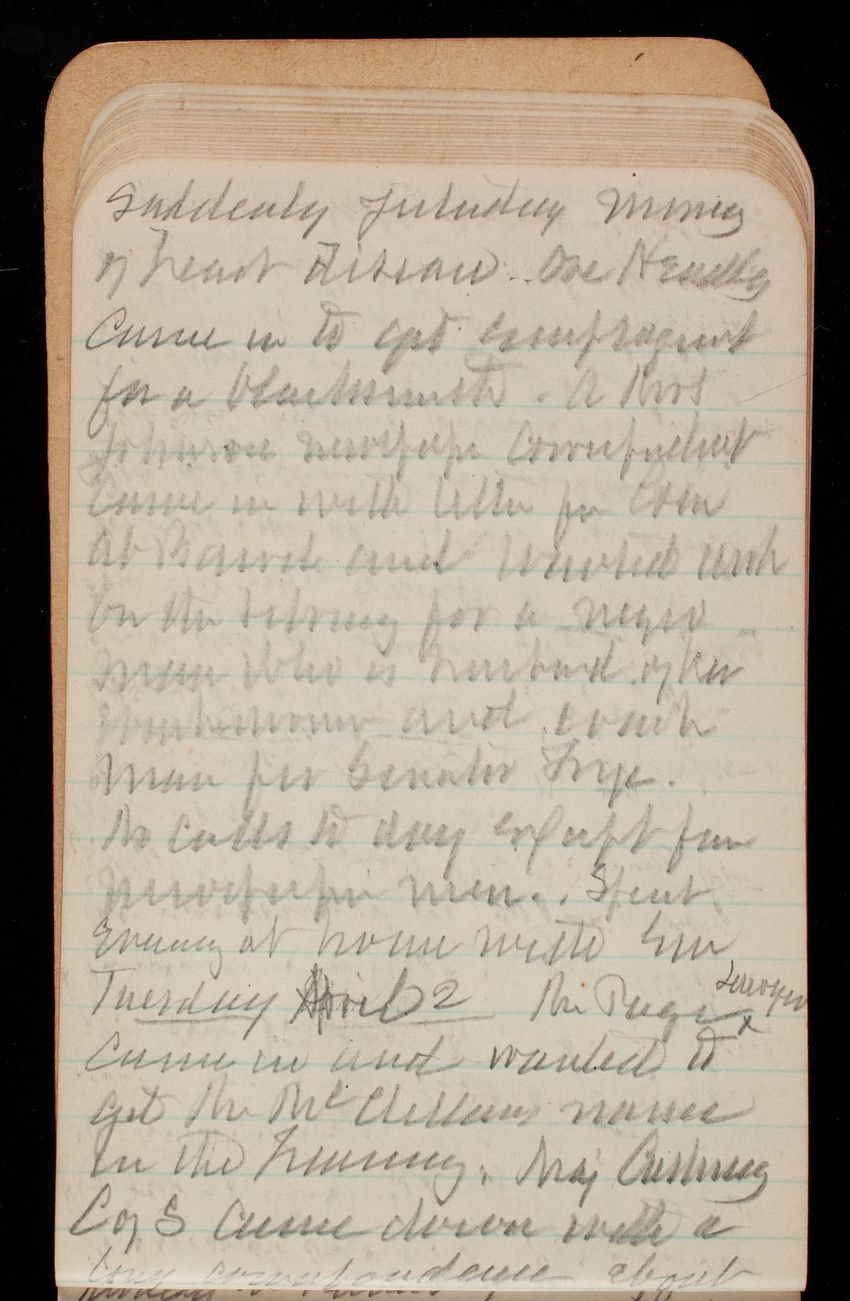 Suddenly Saturday morning
of heart disease. One Hendly
came in to get employment
for a blacksmith. A Mrs
Johnson newspaper correspondent
came in with letter for Gen
and wanted work
on the Library for a negro
man who is husband of her
and coach
man for Senator Frye.
No calls to day except for
newspaper men. Spent
evening at home with Em
Tuesday April 2 Mr Page Lawyer
x
came in and wanted to
get Mr McClellans name
in the hearing. Maj Cushing
C of S came down with a
long correspondence about